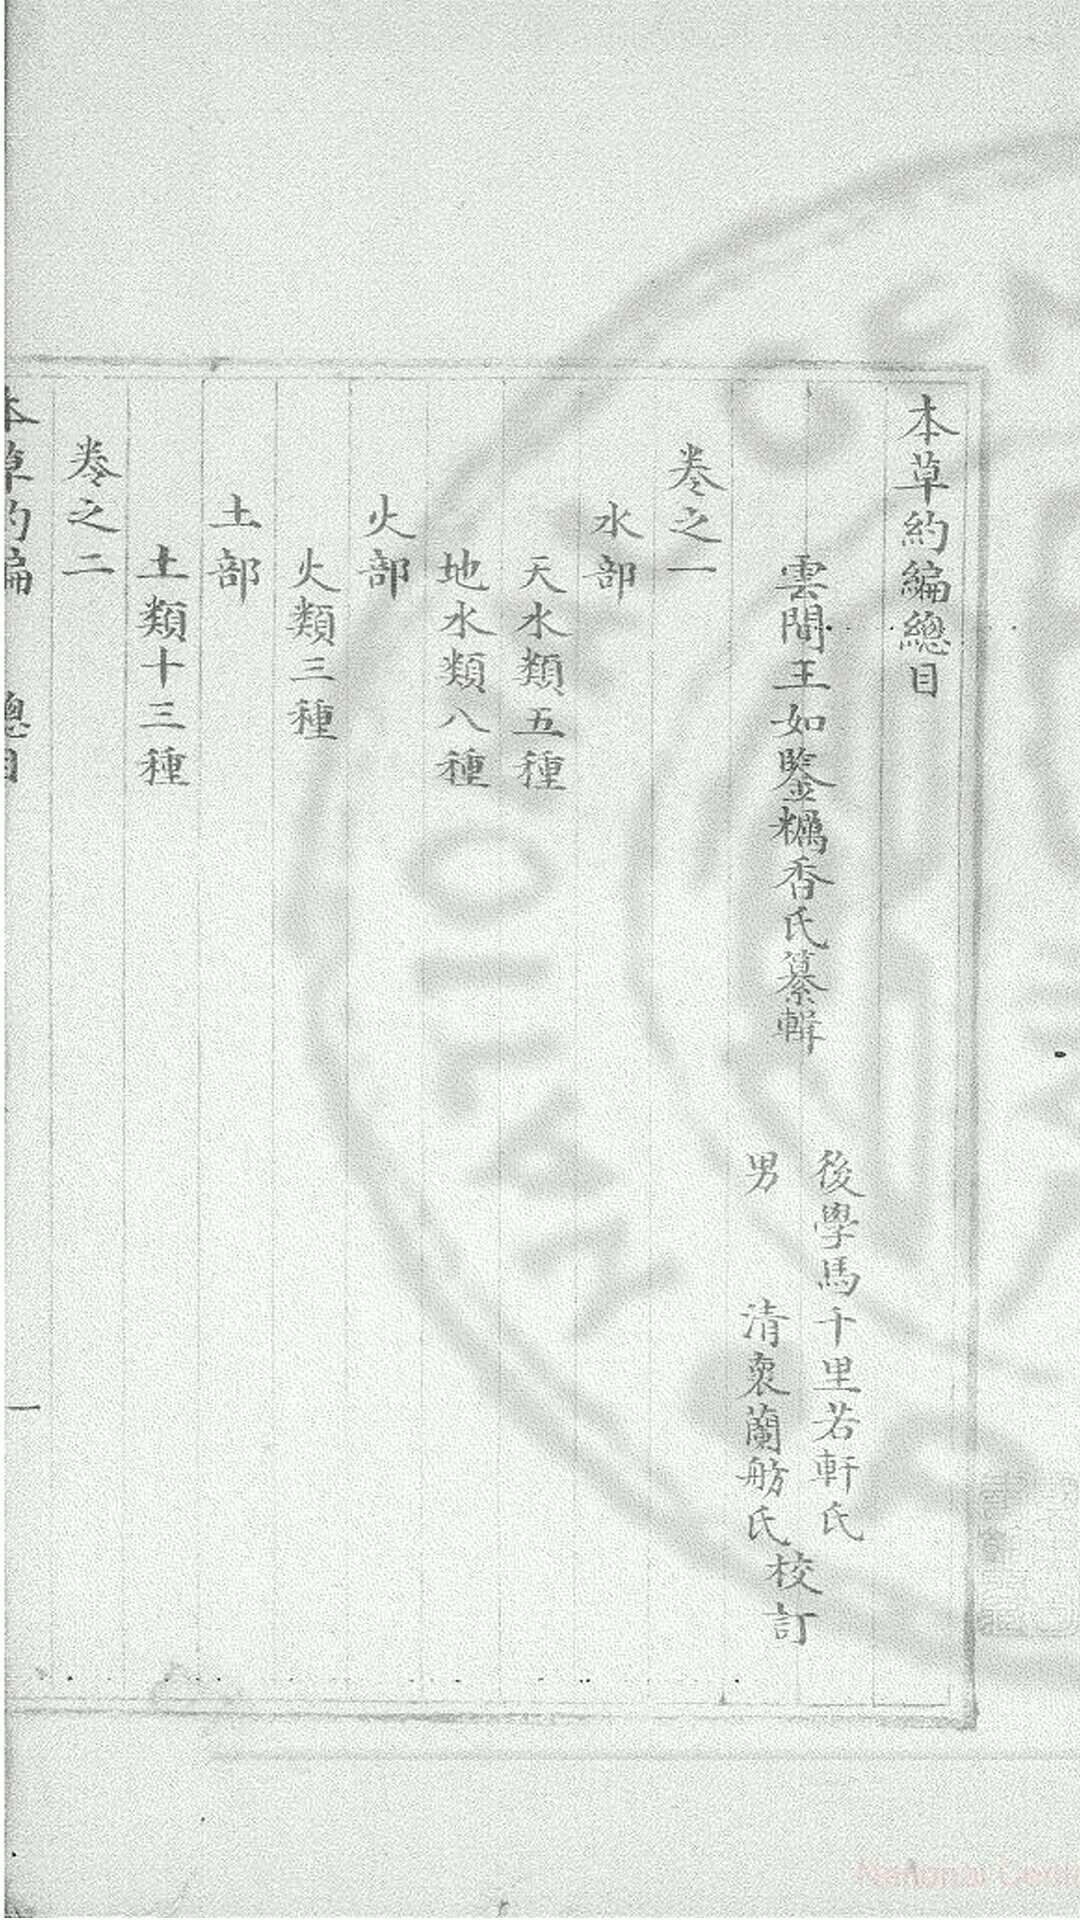 本草約編總目
雲間王如鑒糲香氏纂輯
後學馬千里若軒氏
男 清衷蘭舫氏
校訂
卷之一
水部
天水類五種
地水類八種
火部
火類三種
土部
土類十三種
卷之二
本草約編 總目 一